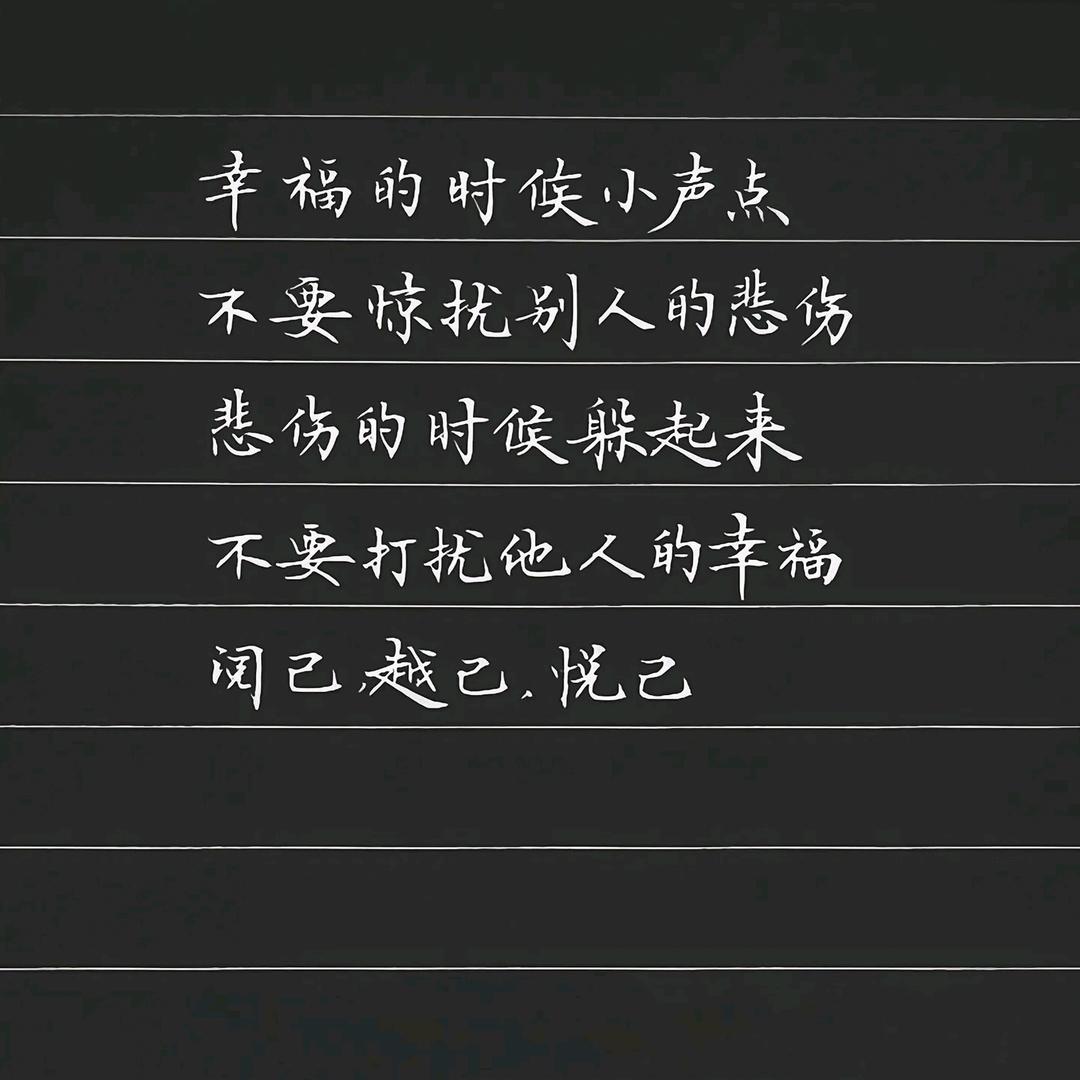 幸福的时候小声点
不要惊扰别人的悲伤
悲伤的时候躲起来
不要打扰他人的幸福
阅己，越己，悦己